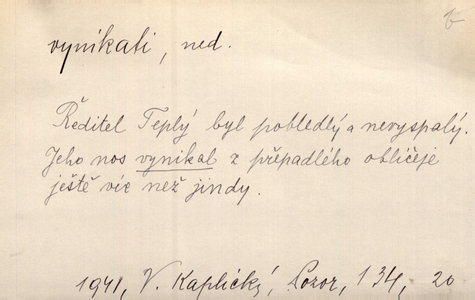 vynikati, ned.
Ředitel Teplý byl pobledlý a nevyspalý.
Jeho nos vynikal z přepadlého obličeje
ještě víc než jindy.
1941, V. Kaplický, Pozor, 134, 20